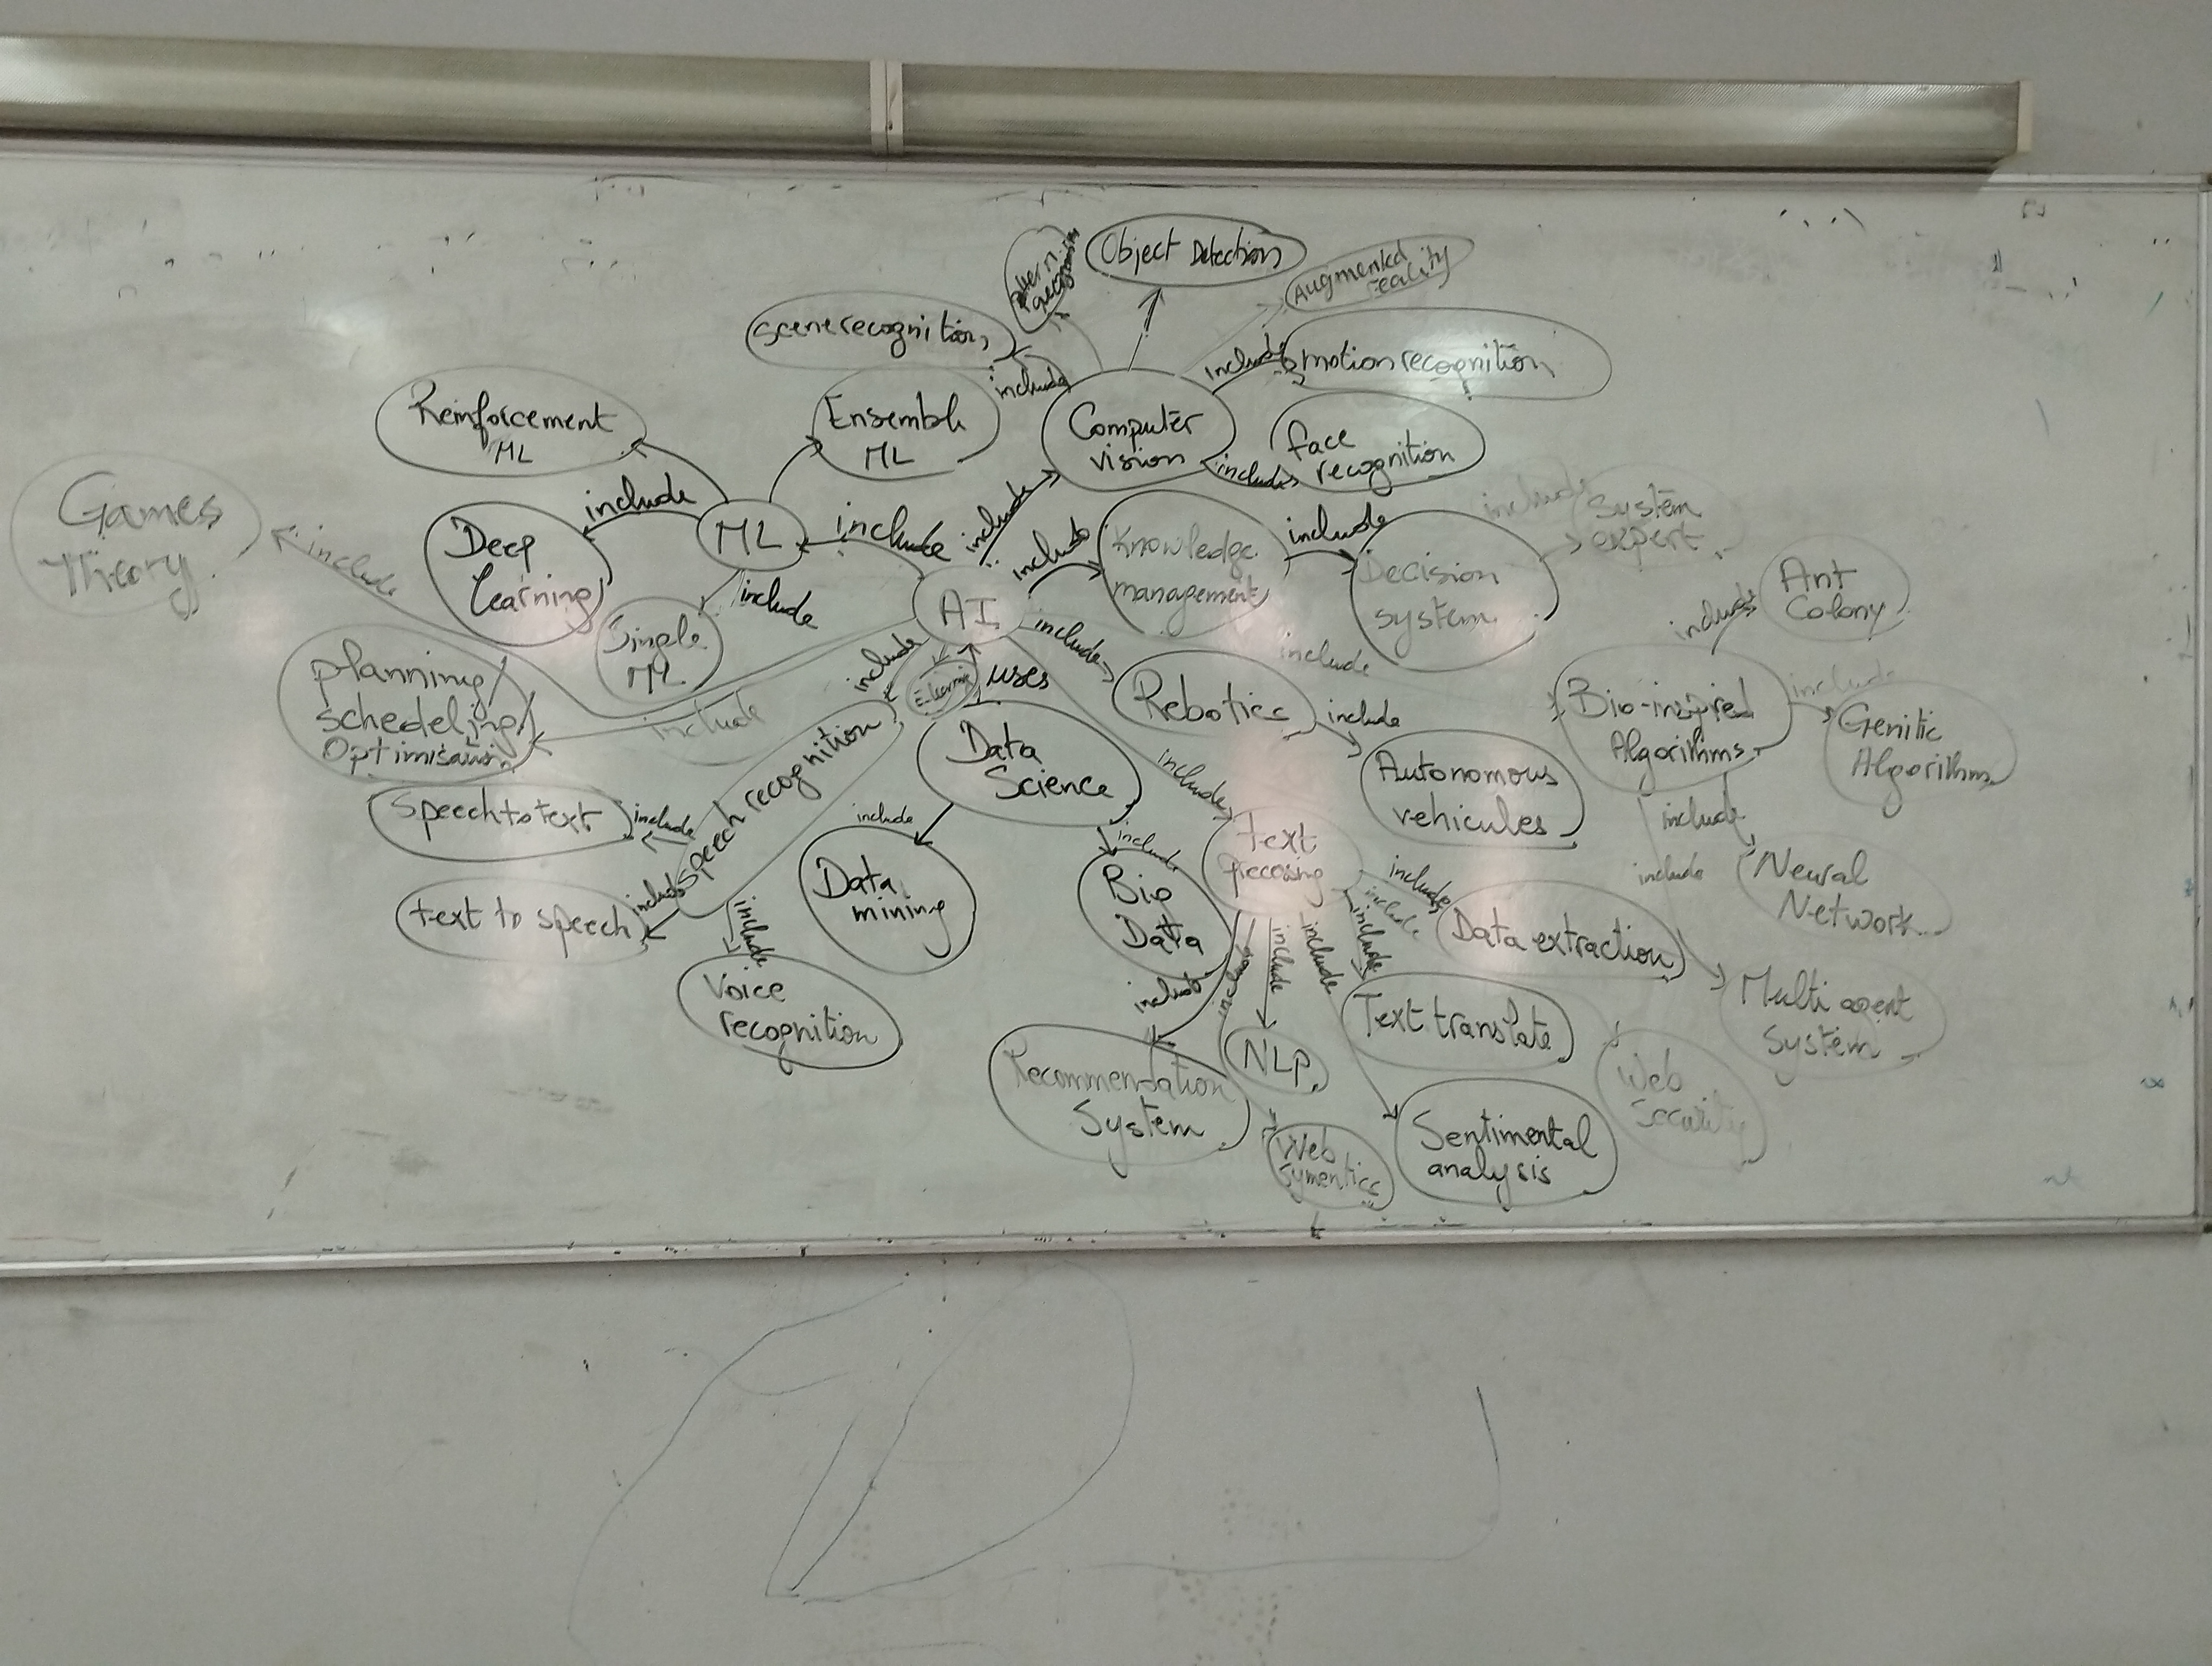 Object Detection
Augmented
reality
scene recognition
include
include
motion recognition
Reinforcement
ML
Ensemble
ML
Computer
vision
face
recognition
include
include
Games
Theory
include
Deep
Learning
ML
include
include
include
Knowledge
management
include
Decision
system
include
System
expert
include
Single
ML
AI
include
include
include
Ant
Colony
planning/
schedeling/
Optimisation
include
uses
Rebotics
include
Bio-inspired
Algorithms
include
Genitic
Algorithm
speech recognition
Data
Science
include
Autonomous
vehicules
include
speech to text
include
include
include
Text
include
include
Neural
Network
text to speech
include
include
Data
mining
Big
Data
include
include
Data extraction
include
include
include
include
include
Voice
recognition
Text translate
Multi agent
System
Recommendation
System
NLP
Web
Security
Web
Symentics
Sentimental
analysis